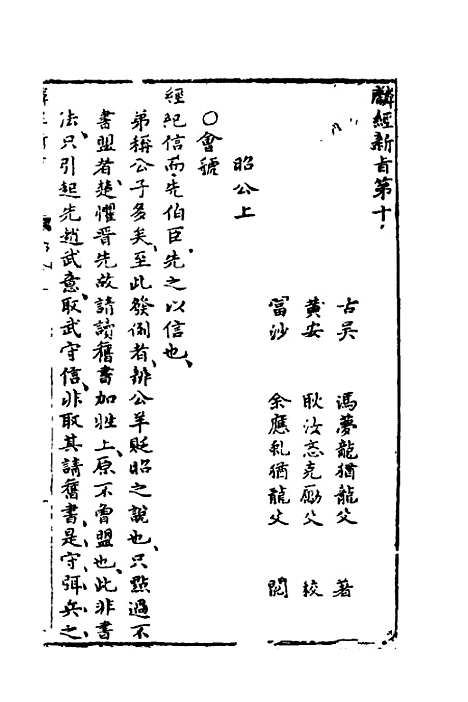 麟經新旨第十
古吳 馮夢龍猶龍父 著
黃安 耿汝忞克勵父 較
富沙 余應虬猶龍父 閱
昭公上
○會虢
經紀信而先伯臣先之以信也
弟稱公子多矣至此發例者辨公羊貶昭之說也只點過不
書盟者楚懼晉先故請讀舊書加牲上原不曾盟也此非書
法只引起先趙武意取武守信非取其請舊書是守弭兵之